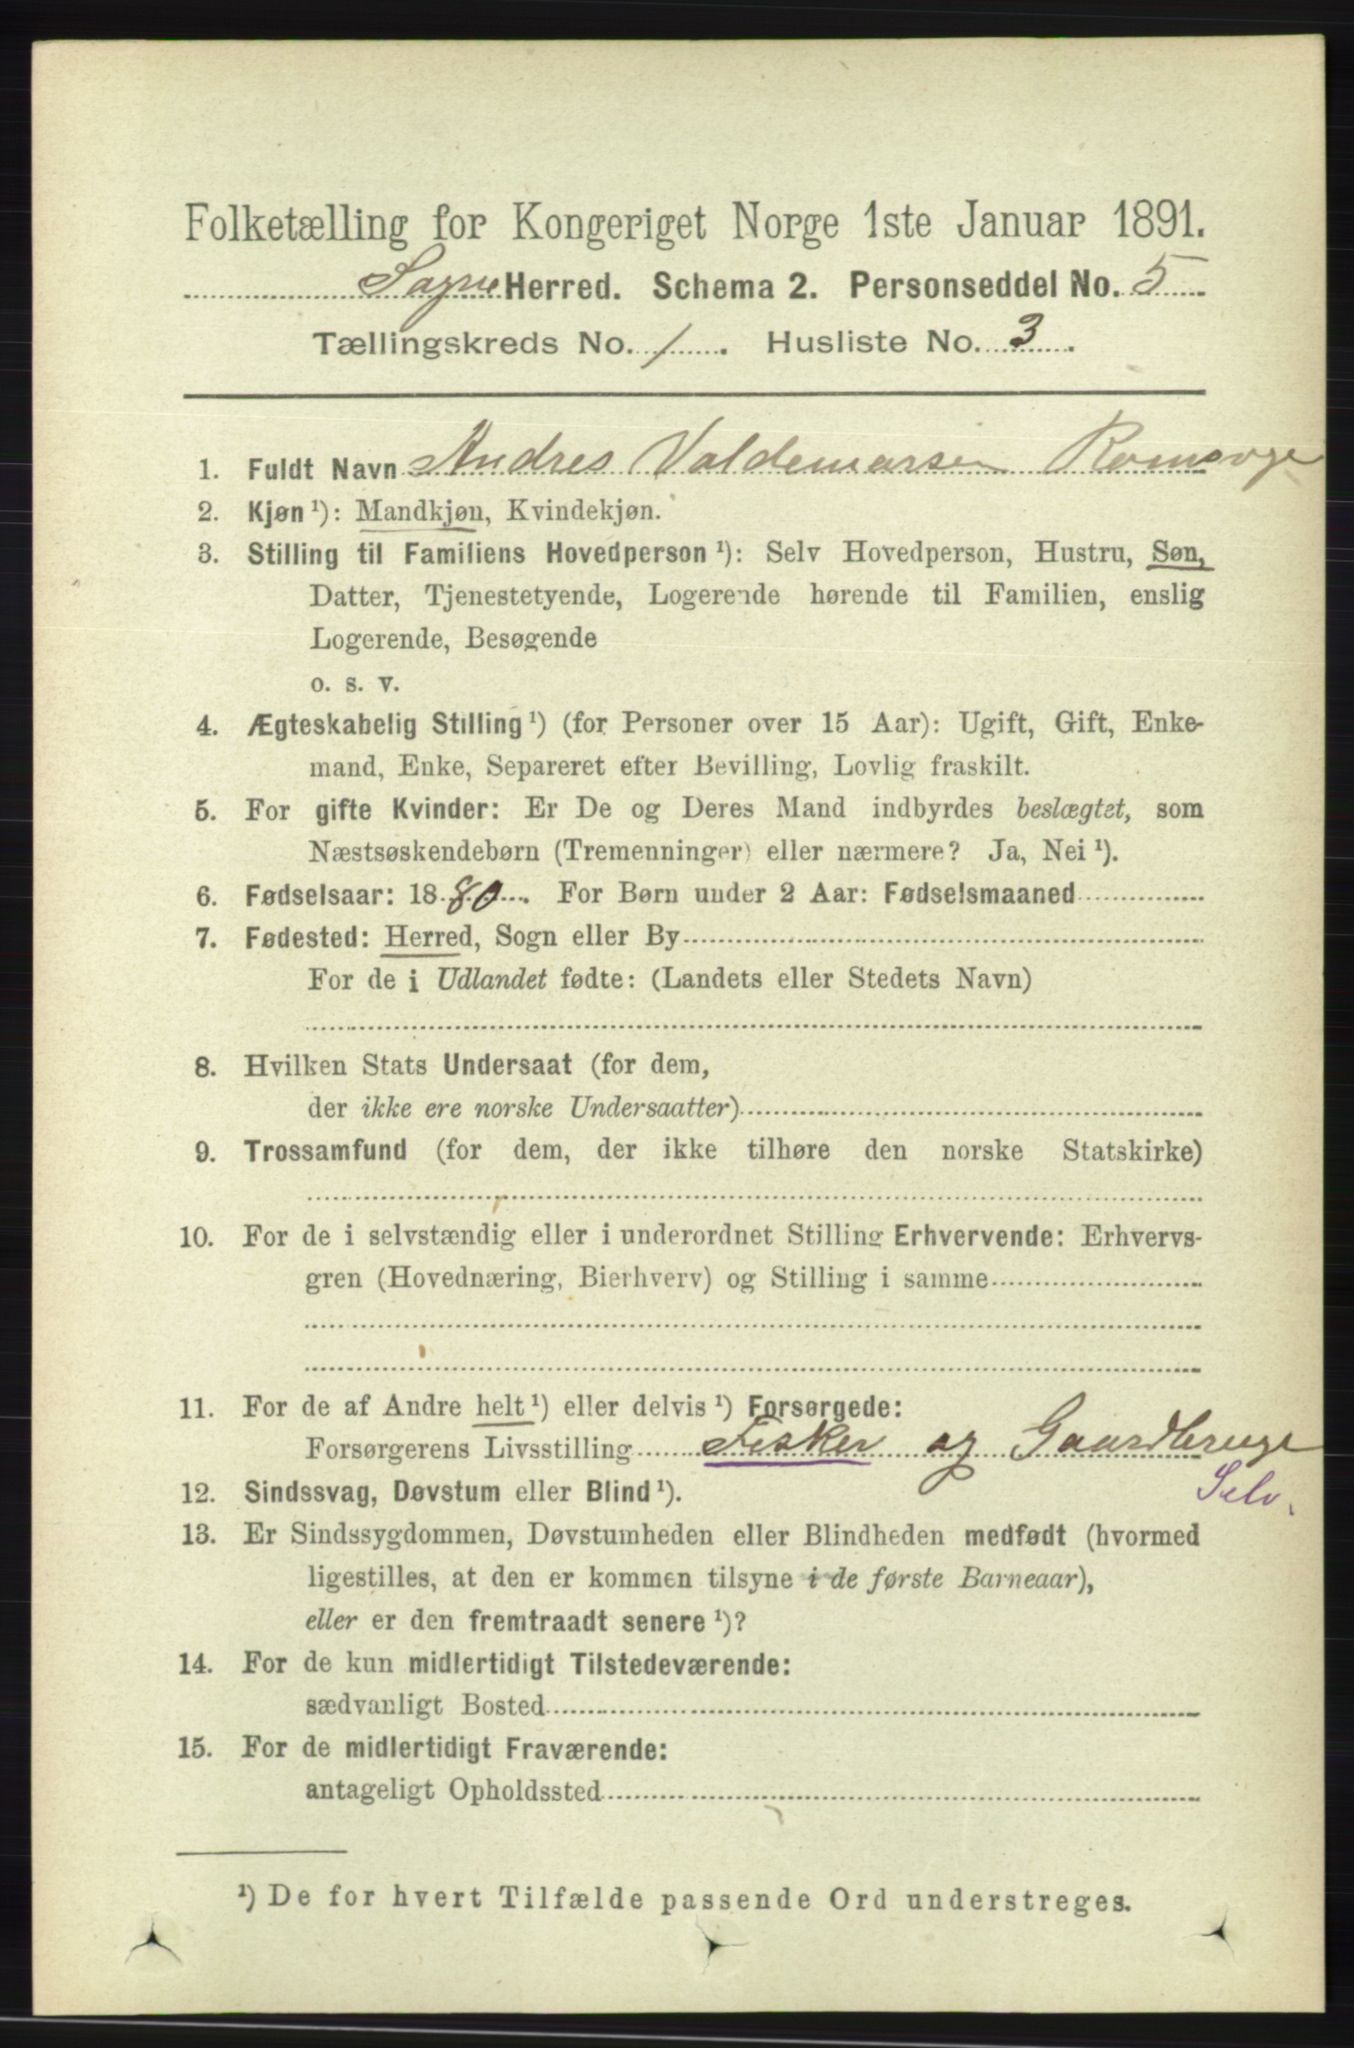 Folketælling for Kongeriget Norge 1ste Januar 1891.
Søgne Herred. Schema 2. Personseddel No. 5
Tællingskreds No. 1. Husliste No. 3.
1. Fuldt Navn Andres Valdemarsen
2. Kjøn ¹): Mandkjøn, Kvindekjøn.
3. Stilling til Familiens Hovedperson ¹): Selv Hovedperson, Hustru, Søn,
Datter, Tjenestetyende, Logerende hørende til Familien, enslig
Logerende, Besøgende
o. s. v.
4. Ægteskabelig Stilling ¹) (for Personer over 15 Aar): Ugift, Gift, Enke-
mand, Enke, Separeret efter Bevilling, Lovlig fraskilt.
5. For gifte Kvinder: Er De og Deres Mand indbyrdes beslægtet, som
Næstsøskendebørn (Tremenninger) eller nærmere? Ja, Nei ¹).
6. Fødselsaar: 1880. For Børn under 2 Aar: Fødselsmaaned
7. Fødested: Herred, Sogn eller By
For de i Udlandet fødte: (Landets eller Stedets Navn)
8. Hvilken Stats Undersaat (for dem,
der ikke ere norske Undersaatter)
9. Trossamfund (for dem, der ikke tilhøre den norske Statskirke)
10. For de i selvstændig eller i underordnet Stilling Erhvervende: Erhvervs-
gren (Hovednæring, Bierhverv) og Stilling i samme
11. For de af Andre helt ¹) eller delvis ¹) Forsørgede:
Forsørgerens Livsstilling Fisker og Gaardbruge
12. Sindssvag, Døvstum eller Blind ¹). Selv.
13. Er Sindssygdommen, Døvstumheden eller Blindheden medfødt (hvormed
ligestilles, at den er kommen tilsyne i de første Barneaar),
eller er den fremtraadt senere ¹)?
14. For de kun midlertidigt Tilstedeværende:
sædvanligt Bosted
15. For de midlertidigt Fraværende:
antageligt Opholdssted
¹) De for hvert Tilfælde passende Ord understreges.